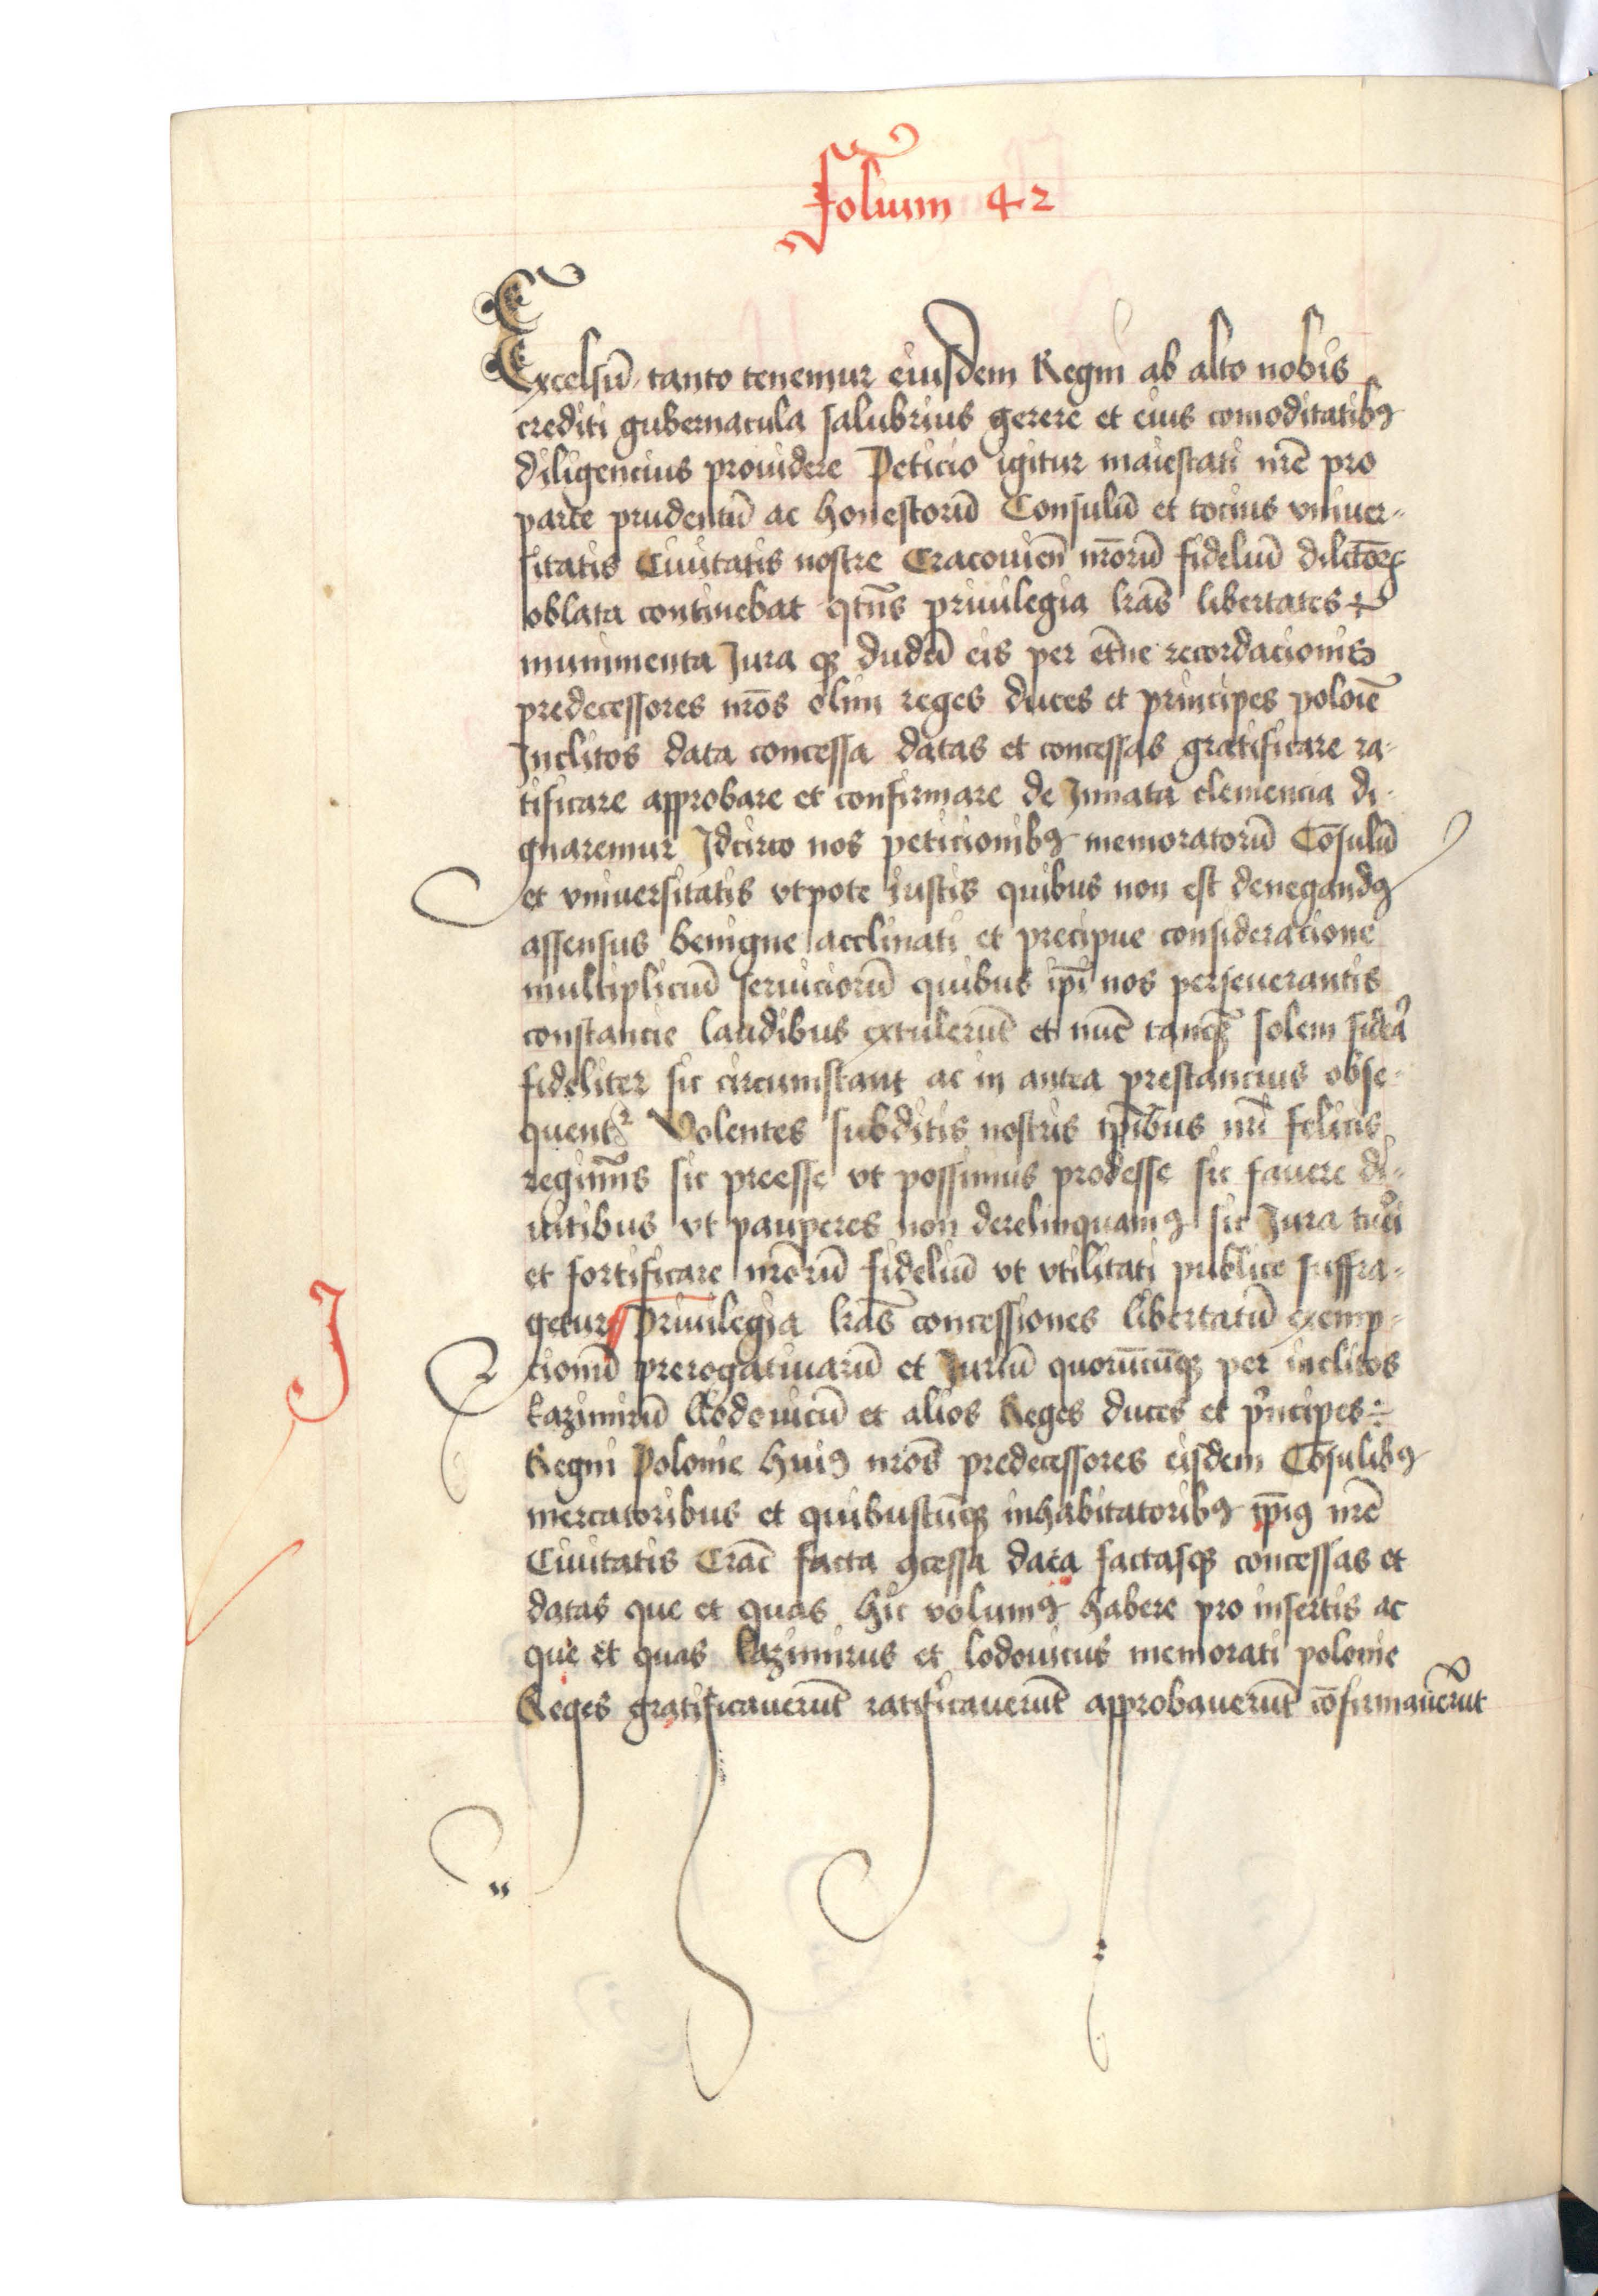 Folium 42
Excelsū tanto tenemur eiusdem Regni ab alto nobis
crediti gubernacula salubrius gerere et eius comoditatibꝯ
diligencius prouidere Peticio igitur maiestati nr̄e pro
parte prudentū ac honestorū Consulū et tocius vniuer-
sitatis Ciuitatis nostre Cracouien̄ nr̄orū fideliū dilctōꝝ
oblata continebat qtn̄s priuilegia lr̄as libertates et
munimenta Jura qꝫ dudū eis per et̄ne recordacionis
predecessores nr̄os olim reges duces et principes poloīe
Inclitos data concessa datas et concessas gratificare ra-
tificare approbare et confirmare de Innata clemencia di-
gnaremur Idcirco nos peticionibꝯ memoratorū Cōsulū
et vniuersitatis vtpote iustis quibus non est denegandꝯ
assensus benigne acclinati et precipue consideracione
multiplicīū seruiciorū quibus ip̄i nos perseuerantis
constancie laudibus extulerūt et nūc tanq̄ꝫ solem sidera
fideliter sic circumstant ac in antea prestancius obse-
quentʳ Volentes subditis nostris tp̄ibus nr̄i felicis
regimīs sic preesse vt possimus prodesse sic fauere di-
uitibus vt pauperes non derelinquamꝯ sic Jura tueri
et fortificare nr̄orū fideliū vt vtilitati publice suffra-
getur Priuilegia lr̄as concessiones libertatū exemp-
cionū prerogatiuarū et Juriū quorūcūqꝫ per inclitos
kazimirū Lodouicū et alios Reges duces et pⁱncipes
Regni Polonie huiꝯ nr̄os predecessores eisdem Cōsulibꝯ
mercatoribus et quibuscūqꝫ inhabitatoribꝯ ip̄iꝯ nr̄e
Ciuitatis Crac̄ facta ꝯcessa data factasqꝫ concessas et
datas que et quas hic volumꝯ habere pro insertis ac
que et quas kazimirus et lodouicus memorati polonie
Reges gratificauerūt ratificauerūt approbauerūt cōfirmauerūt
J